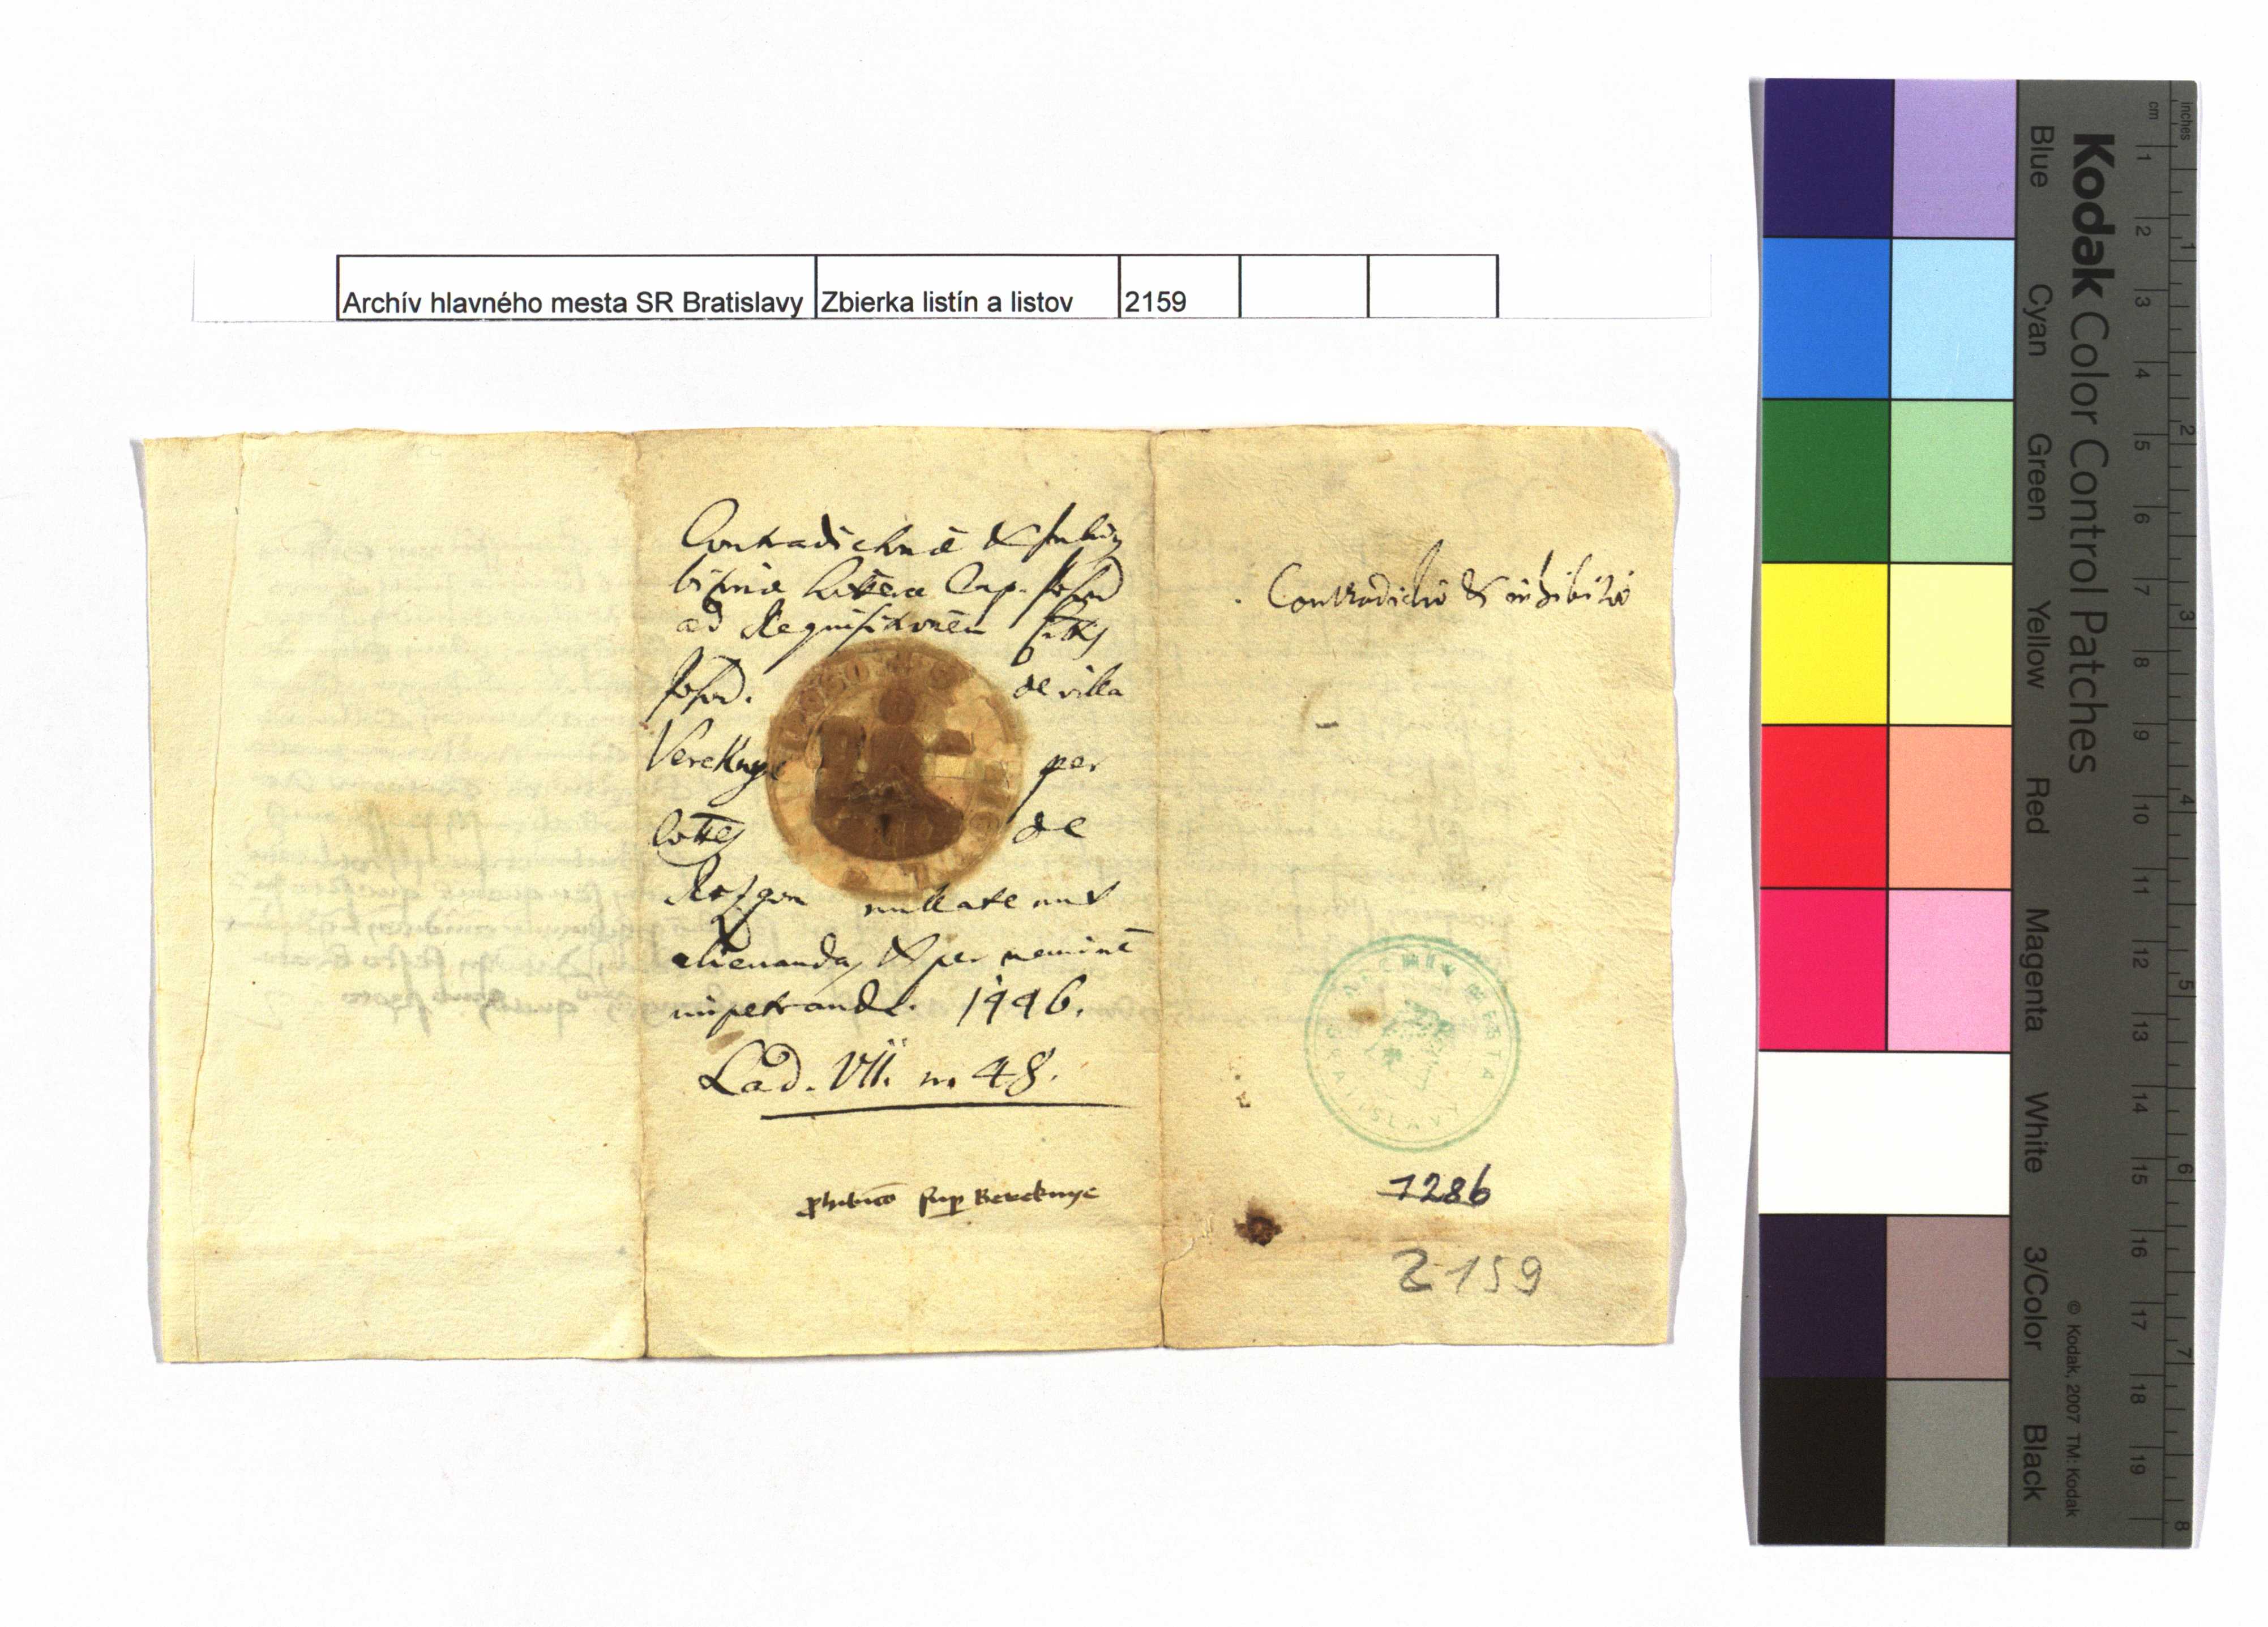 Archív hlavného mesta SR Bratislavy Zbierka listín a listov 2159
Contradictoriæ &
Litteræ Cap. Poson
ad Requisitionem
Poson. de villa
Vereknye per
de
Rozgon nullatenus
alienanda, & per neminē
impetranda. 1446.
Lad. VII. n. 48.
phibitio sup Bereknye
Contradictio & inhibitio
ARCHIV MESTA BRATISLAVY
1286
2159
Kodak Color Control Patches
Blue Cyan Green Yellow Red Magenta White 3/Color Black
© Kodak, 2007 TM: Kodak
inches 1 2 3 4 5 6 7 8
cm 1 2 3 4 5 6 7 8 9 10 11 12 13 14 15 16 17 18 19